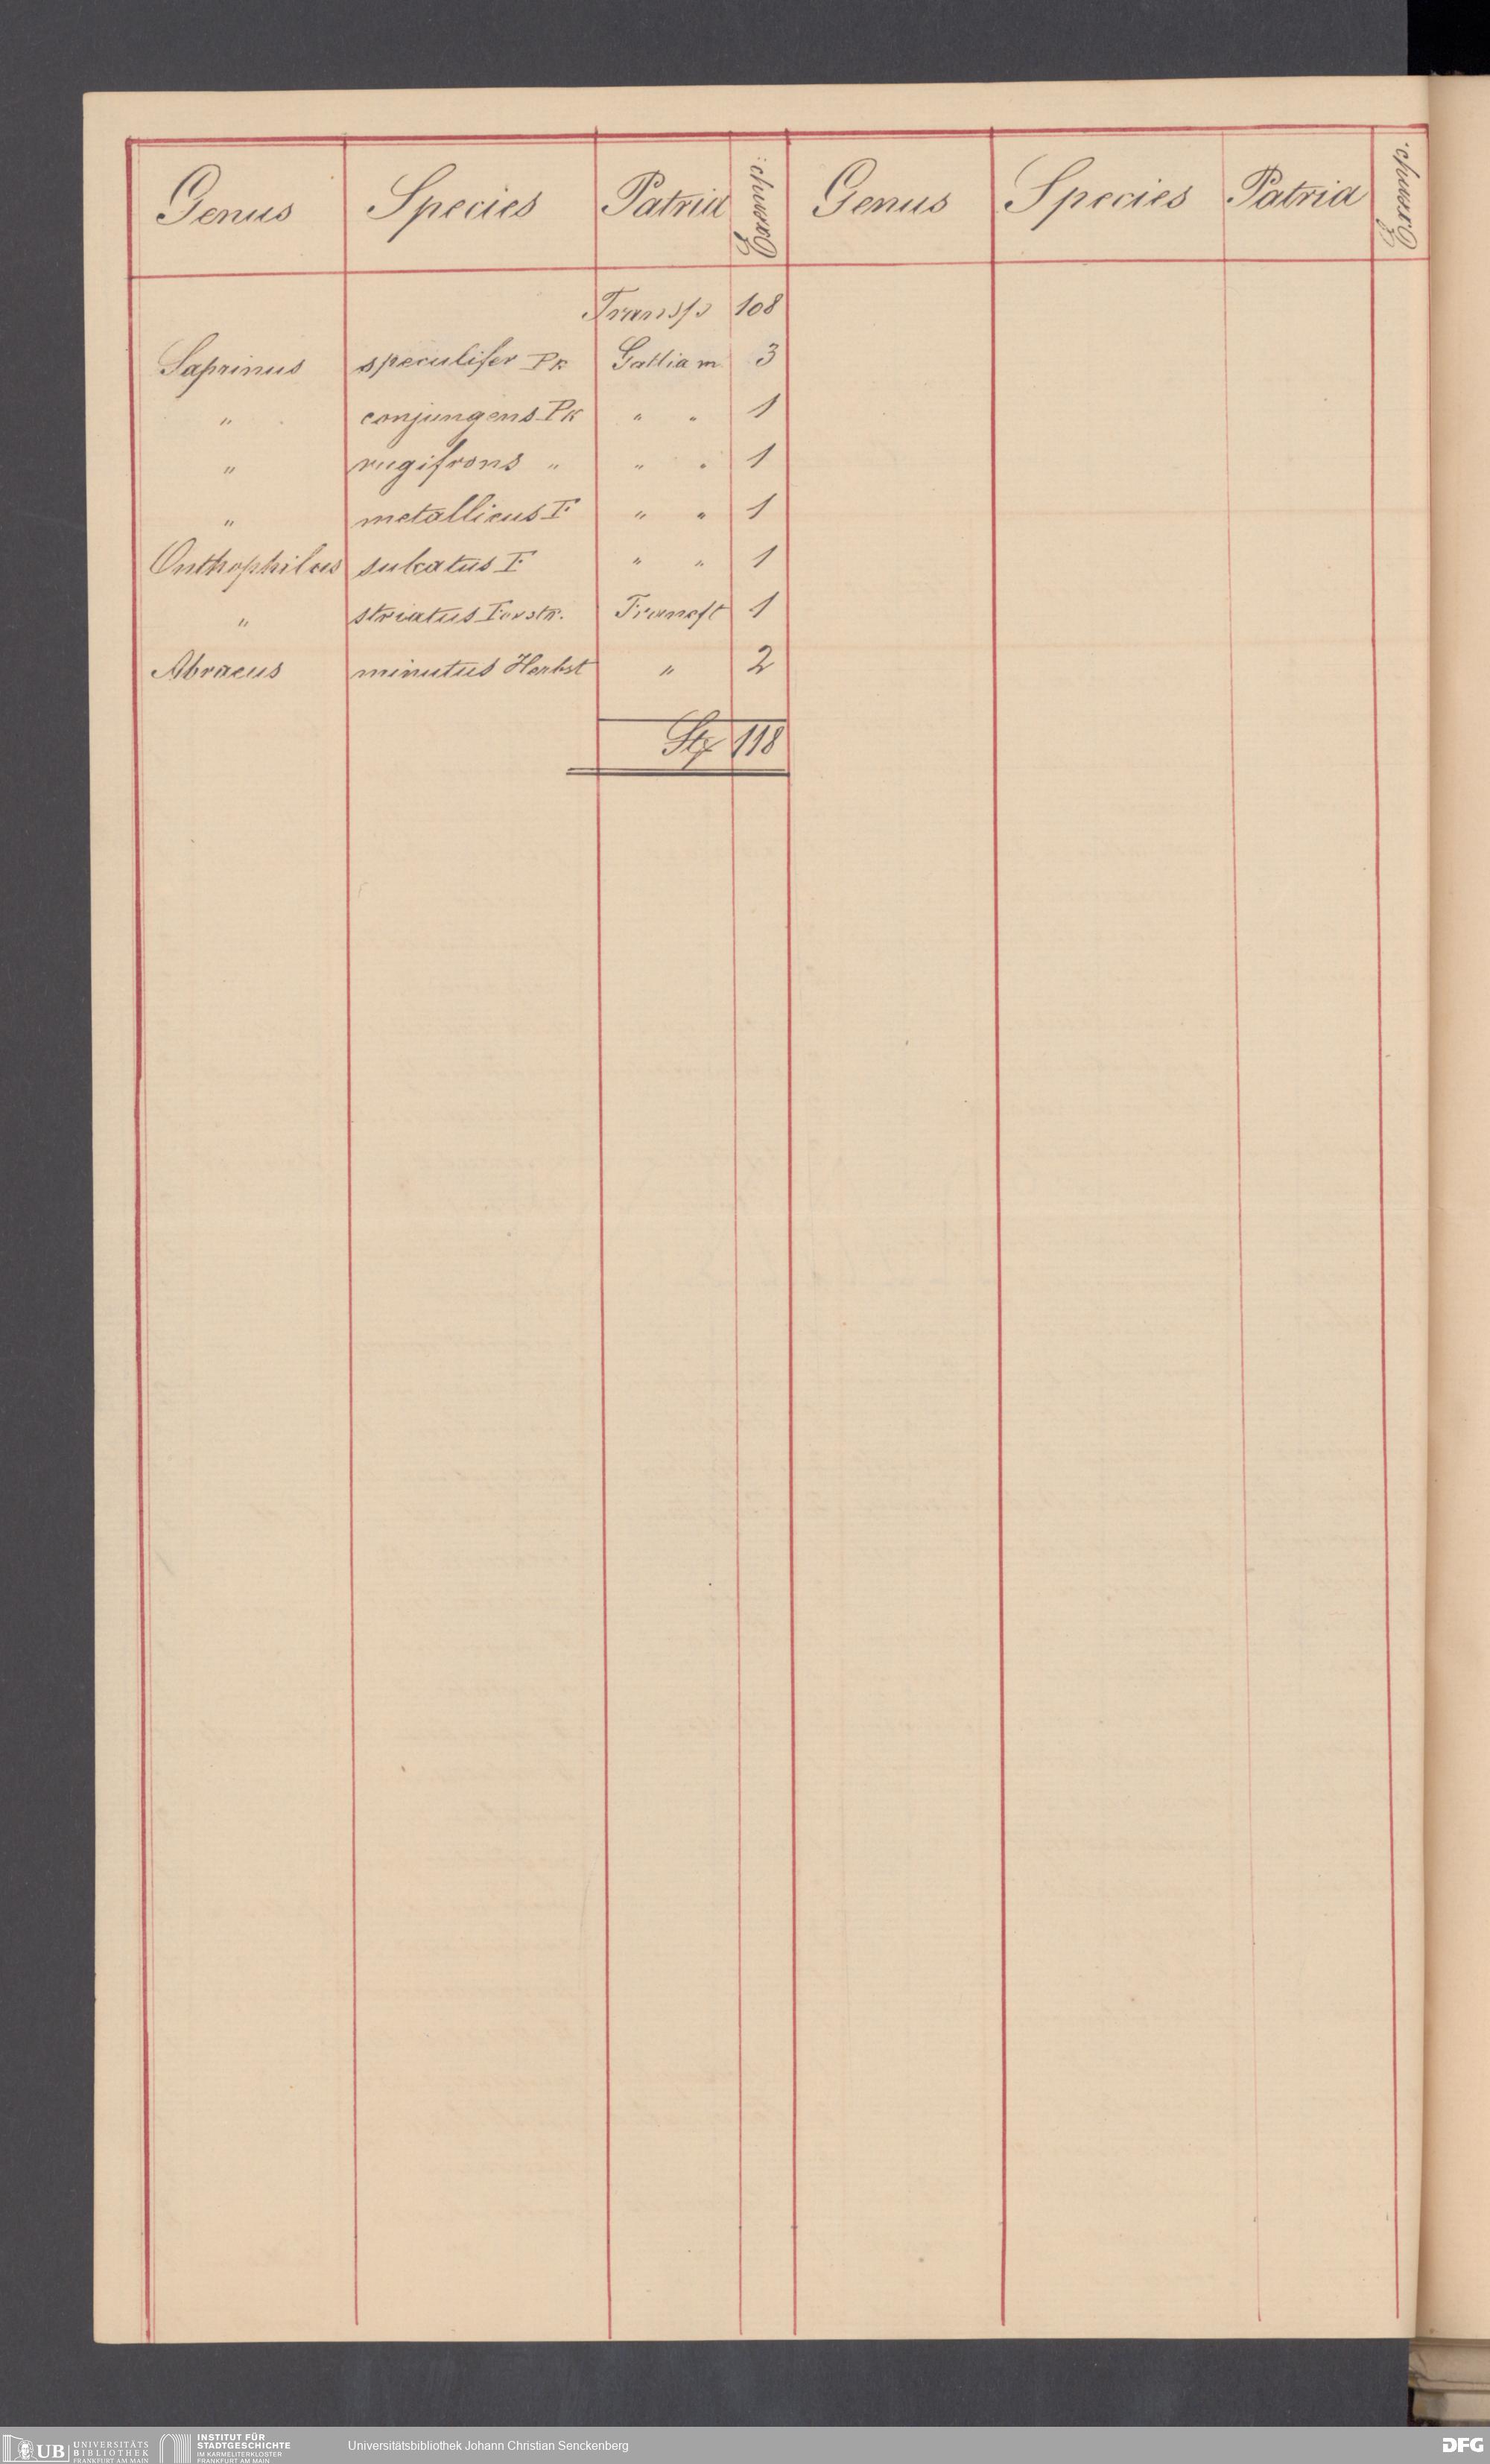 Genus Species Patria Exempl: Genus Species Patria Exempl.
Transp 108
Saprinus speculifer Pk Gallia m. 3
" conjungens Pk " " 1
" rugifrons " " " 1
" metallicus F " " 1
Onthophilus sulcatus F " " 1
" striatus Forstr. Francft 1
Abraeus minutus Herbst " 2
118
UB UNIVERSITÄTS
BIBLIOTHEK
FRANKFURT AM MAIN
INSTITUT FÜR
STADTGESCHICHTE
IM KARMELITERKLOSTER
FRANKFURT AM MAIN
Universitätsbibliothek Johann Christian Senckenberg
DFG